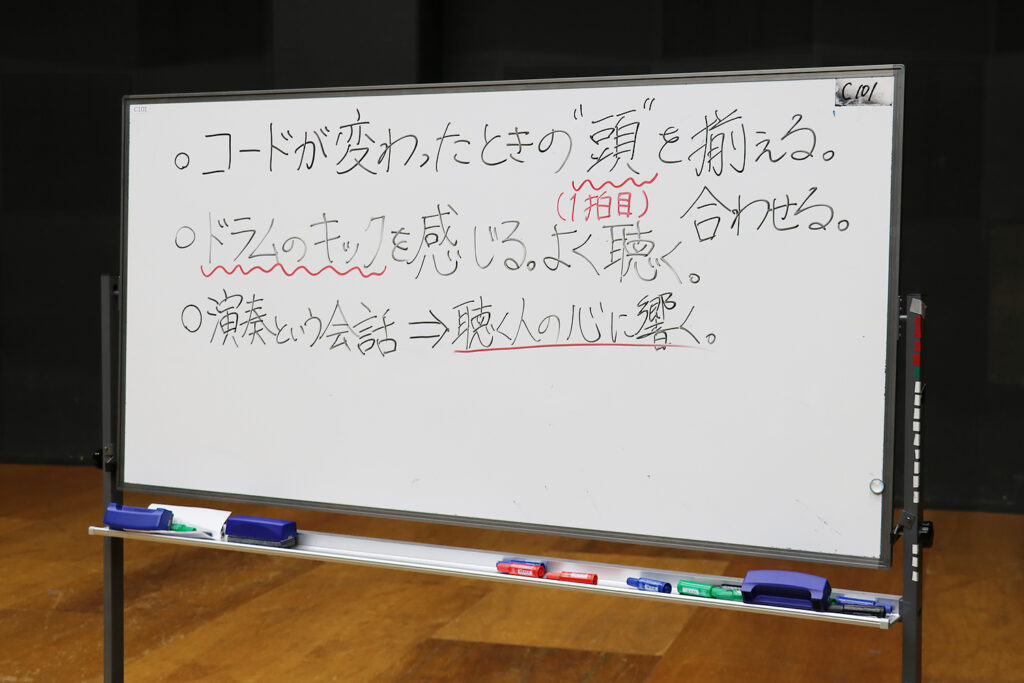 C101
C101
○コードが変わったときの"頭"を揃える。
(1拍目)
合わせる。
○ドラムのキックを感じる。よく聴く。
○演奏という会話⇒聴く人の心に響く。